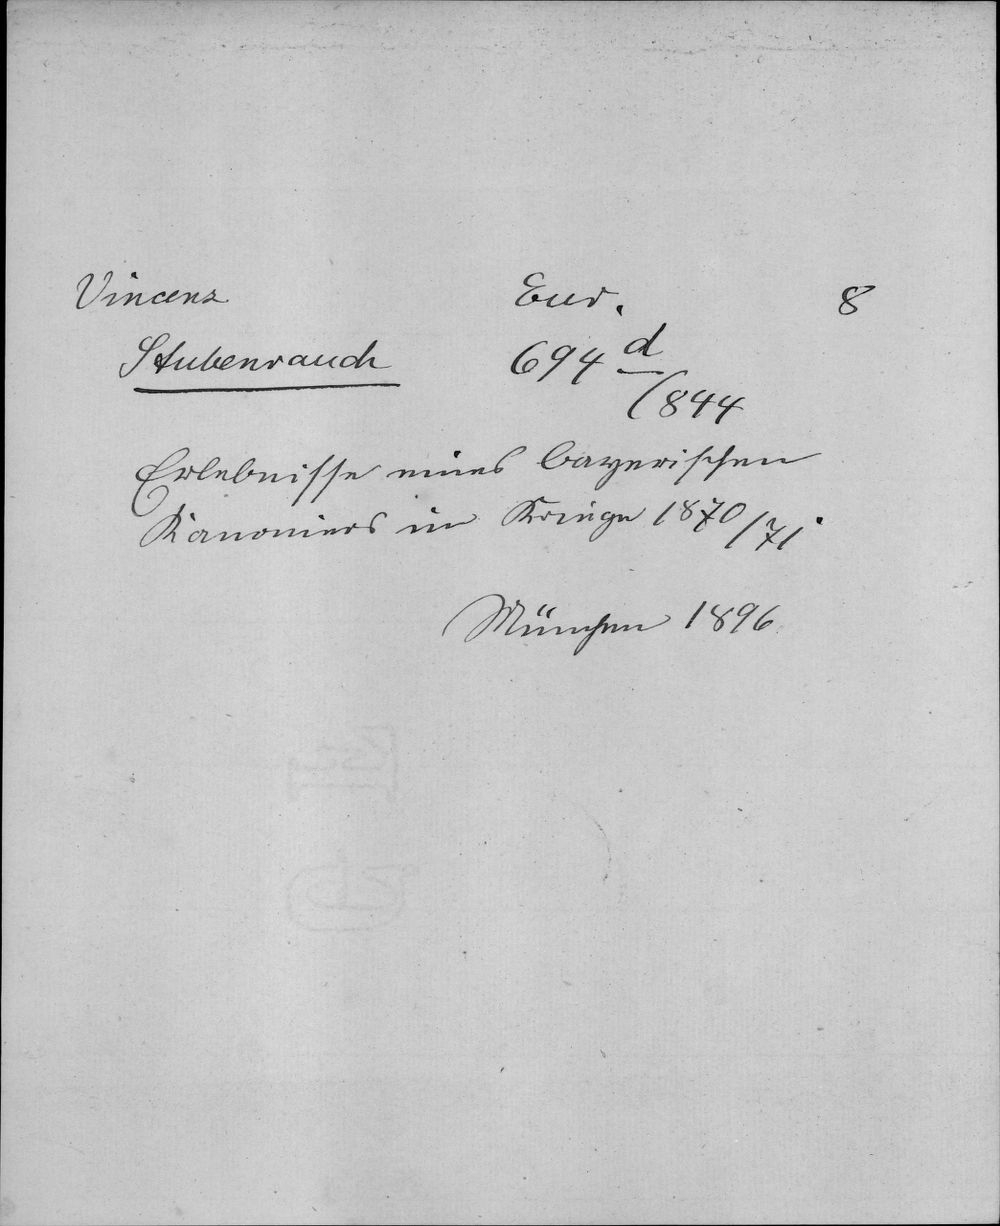 Vincenz Eur. 8
Stubenrauch 694 d
/844
Erlebnisse eines bayerischen
Kanoniers im Kriege 1870/71.
München 1896.